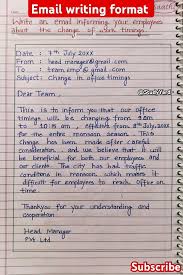 Email writing format
Write an email informing your employees
about the change of work timings.
Date : 7th July 20XX
From : head manager@gmail.com
To : team.emp@gmail.com
Subject : Change in office timings
Dear Team,
This is to inform you that our office
timings will be changing from 9am
to 10:15 am, affected from 8th July, 20XX
for the entire monsoon season. This
change has been made after careful
consideration and we believe that it will
be beneficial for both our employees and
our clients. The city has had traffic
conditions in monsoon, which makes it
difficult for employees to reach office on
time.
Thankyou for your understanding and
cooperation
Head Manager
Pvt Ltd
Subscribe